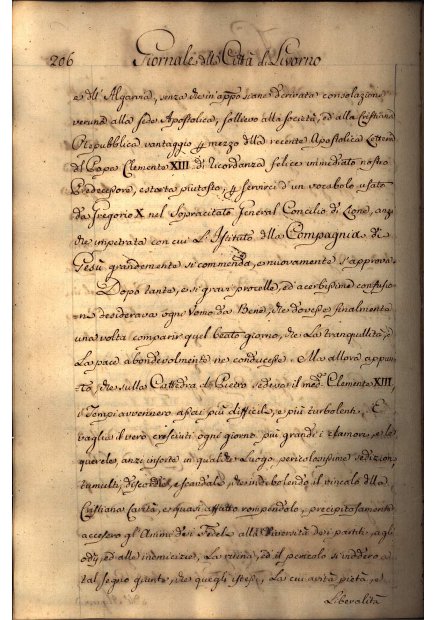 206 Giornale della Città di Livorno
e dell'Algarvia, senza che in appo siane derivata consolazione
veruna alla Sede Apostolica, sollievo alla società, ed alla Cristiana
Repubblica vantaggio p mezzo della recente Apostolica Lettera
del Papa Clemente XIII. di ricordanza felice immediato nostro
Predecessore, estorta piutosto, p servirci d'un vocabolo usato
da Gregorio X nel Sopracitato General Concilio di Lione, anzi
che impetrata con cui L'Istituto della Compagnia di
Gesù grandemente si commenda, e nuovamente s'approva.
Dopo tante, e si gravi procelle, ed acerbissime confusio
ne desiderava ogni Uomo da Bene, che dovesse finalmente
una volta comparir quel beato giorno, che La tranquillità, e
La pace abondevolmente ne conducesse. Ma allora appun
to, che sulla Cattedra di Pietro sedeva il med. Clemente XIII,
i Tempi avvennero assai più difficili, e più turbolenti. E
vaglia il vero cresciuti ogni giorno più grandi i clamori, e le
querele, anzi insorte in qualche Luogo, pericolosissime sedizioni,
tumulti, discordie, e scandali, che indebolendo il vincolo della
Cristiana Carità, e quasi affatto rompendolo, precipitosamente
accesero gl'Animi dei Fedeli alla diversità dei partiti, agli
odij, ed alle inimicizie, La rovina, ed il pericolo si viddero a
tal segno giunte, che quegli istessi, La cui avita pietà, e
Liberalità